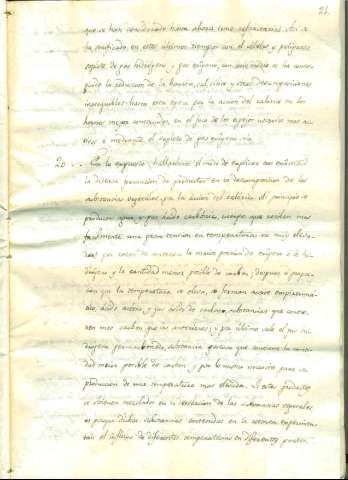 21.
que se han considerado hasta ahora como refractarias. Asi se
ha verificado, en estos ultimos tiempos con el célebre y peligroso
soplete de gas hidrogeno y gas oxigeno, con cuyo medio se ha conse-
guido la reduccion de la barita, cal,
inasequibles hasta esta epoca por la accion del calorico en los
hornos mejor construidos, en el foco de los espejos ustorios mas ac-
tivos o mediante el soplete de gas oxigeno
20 . . Con lo expuesto, hallaremos el modo de explicar con exactitud
la diversa formacion de productos en la descomposicion de las
substancias vegetales por la accion del calorico. Al principio se
producen agua y gas acido carbonico, cuerpos que reciben mas
facilmente una gran tension en temperaturas no muy eleva-
das, por razon de
la mayor porcion de oxigeno ó de hi-
drogeno y la cantidad menor posible de carbon; despues á propor-
cion que la temperatura se eleva, se forman aceite empireumá-
tico, acido acetico, y gas oxido de carbono, substancias que contie-
nen mas carbon que las anteriores; y por ultimo sale el gas hi-
drogeno percarbonado, substancia gaseosa que contiene la canti-
dad mayor posible de carbon, y por lo mismo necesita para su
produccion de una temperatura mas elevada. Si estos productos
se obtienen mezclados en la destilacion de las substancias vegetales
es porque dichas substancias contenidas en la retorta experimen-
tan el influjo de diferentes temperaturas en diferentes puntos